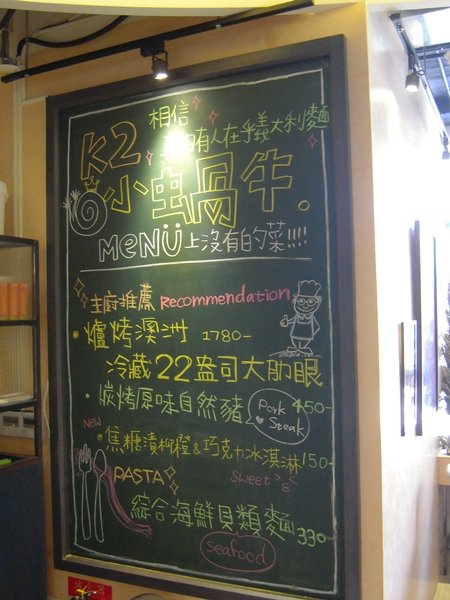 K2
相信
有人在乎義大利麵
小虫蝸牛.
MENÜ 上沒有的菜!!!!
主廚推薦 Recommendation
• 爐烤澳洲 1780-
冷藏22盎司大肋眼
• 炭烤原味自然豬 450-
Pork Steak
NEW
• 焦糖漬柳橙&巧克力冰淇淋 150-
Sweet
PASTA
綜合海鮮貝類麵 330-
seafood